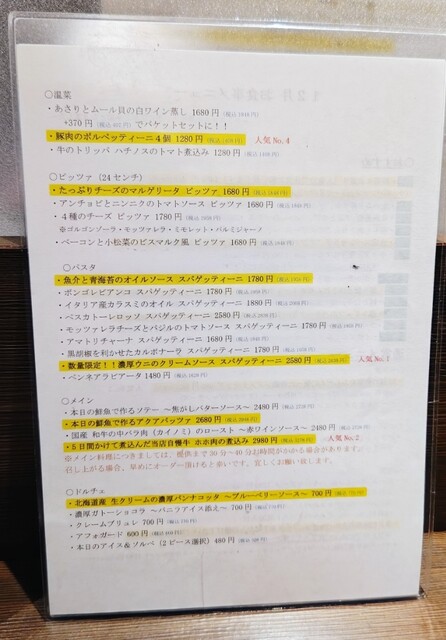 ○温菜
・あさりとムール貝の白ワイン蒸し 1680円
+370円 でバケットセットに！！
・豚肉のポルペッティーニ4個 1280円 人気No.4
・牛のトリッパ ハチノスのトマト煮込み 1280円
○ピッツァ（24センチ）
・たっぷりチーズのマルゲリータ ピッツァ 1680円
・アンチョビとニンニクのトマトソース ピッツァ 1680円
・4種のチーズ ピッツァ 1780円
※ゴルゴンゾーラ・モッツァレラ・ミモレット・パルミジャーノ
・ベーコンと小松菜のビスマルク風 ピッツァ 1680円
○パスタ
・魚介と青海苔のオイルソース スパゲッティーニ 1780円
・ボンゴレビアンコ スパゲッティーニ 1780円
・イタリア産カラスミのオイル スパゲッティーニ 1880円
・ペスカトーレロッソ スパゲッティーニ 2580円
・モッツァレラチーズとバジルのトマトソース スパゲッティーニ 1780円
・アマトリチャーナ スパゲッティーニ 1680円
・黒胡椒を利かせたカルボナーラ スパゲッティーニ 1780円
・数量限定！！濃厚ウニのクリームソース スパゲッティーニ 2580円 人気No.1
・ペンネアラビアータ 1480円
○メイン
・本日の鮮魚で作るソテー ～焦がしバターソース～ 2480円
・本日の鮮魚で作るアクアパッツァ 2680円
・国産 和牛の中バラ肉（カイノミ）のロースト ～赤ワインソース～ 2480円
・5日間かけて煮込んだ当店自慢牛 ホホ肉の煮込み 2980円 人気No.2
※メイン料理につきましては、提供まで30分～40分お時間がかかる場合があります。
召し上がる場合、早めにオーダー頂けると幸いです。宜しくお願い致します。
○ドルチェ
・北海道産 生クリームの濃厚パンナコッタ ～ブルーベリーソース～ 700円
・濃厚ガトーショコラ ～バニラアイス添え～ 700円
・クレームブリュレ 700円
・アフォガード 600円
・本日のアイス＆ソルベ（2ピース選択）480円